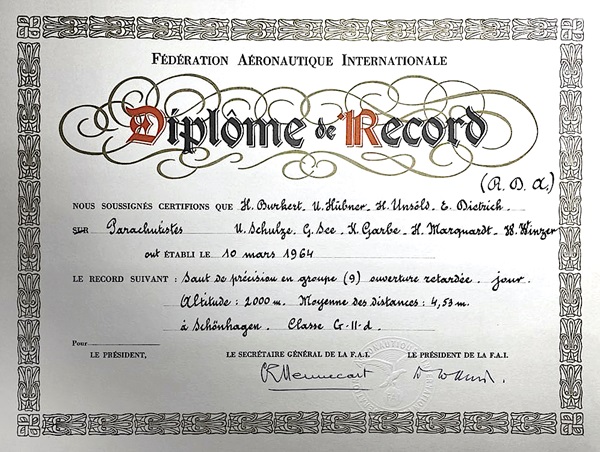 FÉDÉRATION AÉRONAUTIQUE INTERNATIONALE
Diplôme de Record
(R. D. A.)
NOUS SOUSSIGNÉS CERTIFIONS QUE H. Burkert. U. Hübner. H. Unsöld. E. Dietrich.
SUR Parachutistes U. Schulze. G. See. K. Garbe. H. Marquardt. W. Winzer
ont ÉTABLI LE 10 mars 1964
LE RECORD SUIVANT : Saut de précision en groupe (9) ouverture retardée. jour.
Altitude : 2000 m. Moyenne des distances : 4,53 m.
à Schönhagen. Classe G-II-d.
Pour
LE PRÉSIDENT, LE SECRÉTAIRE GÉNÉRAL DE LA F.A.I. LE PRÉSIDENT DE LA F.A.I.